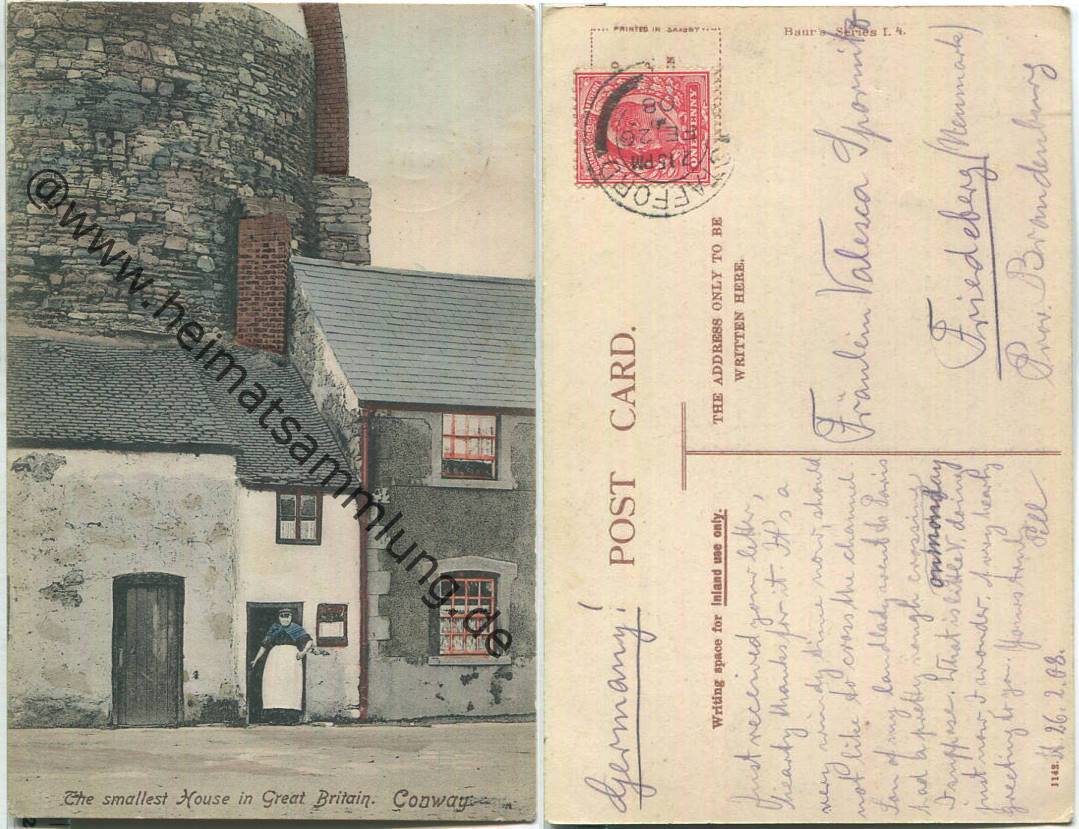 The smallest House in Great Britain. Conway.
@www.heimatsammlung.de
Baur's Series I. 4.
PRINTED IN SAXONY
ONE PENNY
STAFFORD
2.15 PM
FE 26
08
POST CARD.
THE ADDRESS ONLY TO BE
WRITTEN HERE.
Writing space for Inland use only.
Germany!
Fräulein Valesca
Friedeberg (Neumark)
Prov. Brandenburg
Just received your letter,
hearty thanks for it. It's a
very windy time now, should
not like to cross the channel.
Son of my landlady went to Paris
had a pretty rough crossing
on monday
I suppose. What is little V. doing
just now I wonder. A very hearty
greeting to you. Yours truly
St 26. 2. 08.
1142.